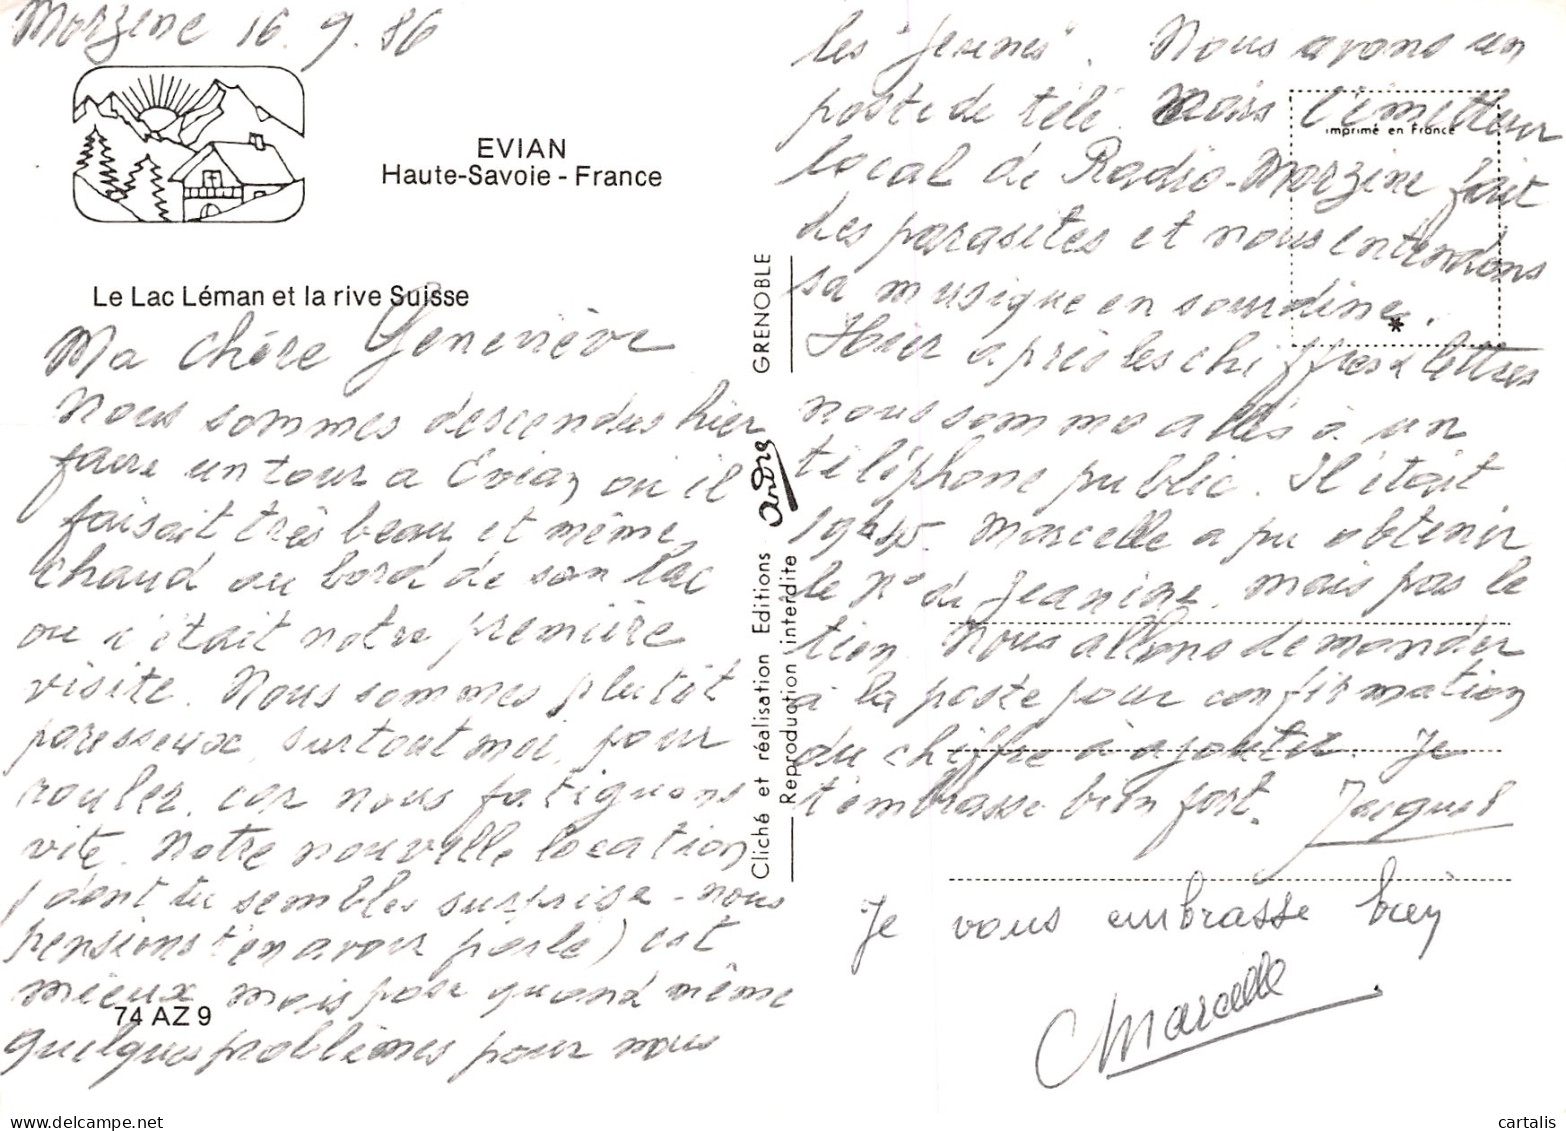 Morzine 16.9.86
EVIAN
Haute-Savoie - France
Le Lac Léman et la rive Suisse
Ma chère Geneviève
Nous sommes descendus hier
faire un tour à Evian où il
faisait très beau et même
chaud au bord de son lac
où c'était notre première
visite. Nous sommes plutôt
paresseux, surtout moi, pour
rouler, car nous fatiguons
vite. Notre nouvelle location
(dont tu sembles surprise - nous
pensions t'en avoir parlé) est
mieux, mais pose quand même
74 AZ 9
quelques problèmes pour nous
GRENOBLE
André
Cliché et réalisation Editions
Reproduction interdite
imprimé en France
les "jeunes". Nous avons un
poste de télé. Mais l'émetteur
local de Radio-Morzine fait
des parasites et nous entendons
sa musique en sourdine.
*
Hier après les chiffres & lettres
nous sommes allés à un
téléphone public. Il était
19h45. Marcelle a pu obtenir
le N° de Jeanine, mais pas le
tien. Nous allons demander
à la poste pour confirmation
du chiffre à ajouter. Je
t'embrasse bien fort. Jacques
Je vous embrasse bien
Marcelle